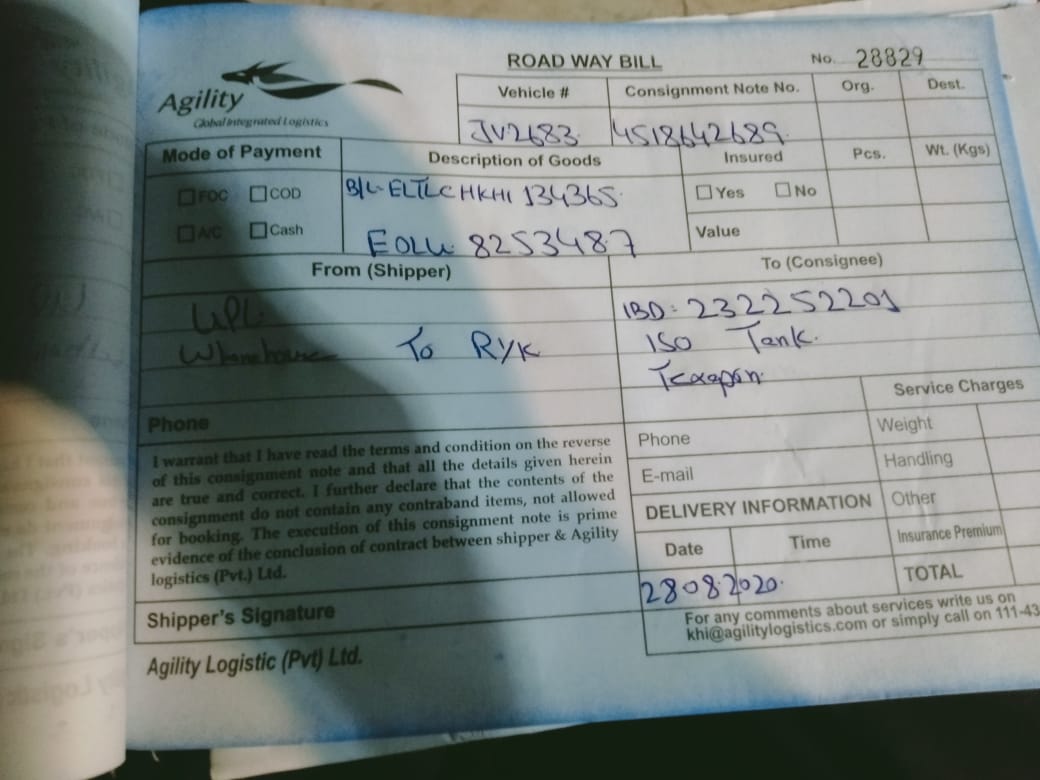 ROAD WAY BILL
No. 28829
Agility
Global Integrated Logistics
Vehicle #
Consignment Note No.
Org.
Dest.
JV2683
4518642689
Mode of Payment
Description of Goods
Insured
Pcs.
Wt. (Kgs)
FOC
COD
B/L ELTLCHKHI 134365
Yes
No
A/C
Cash
EOLU 8253487
Value
From (Shipper)
To (Consignee)
UPL
IBD: 232252201
Warehouse To RYK
ISO Tank
Texapon
Phone
Service Charges
I warrant that I have read the terms and condition on the reverse
of this consignment note and that all the details given herein
are true and correct. I further declare that the contents of the
consignment do not contain any contraband items, not allowed
for booking. The execution of this consignment note is prime
evidence of the conclusion of contract between shipper & Agility
logistics (Pvt.) Ltd.
Phone
Weight
E-mail
Handling
DELIVERY INFORMATION
Other
Date
Time
Insurance Premium
28.08.2020
TOTAL
Shipper's Signature
For any comments about services write us on
khi@agilitylogistics.com or simply call on 111-43
Agility Logistic (Pvt) Ltd.